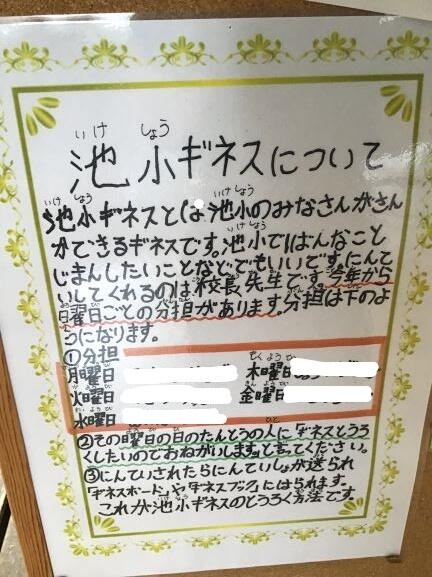 池小ギネスについて
池小ギネスとは池小のみなさんがさん
かできるギネスです。池小でばんなこと
じまんしたいことなどでもいいです。にんて
いしてくれるのは校長先生です。今年から
曜日ごとの分担があります。分担は下のよ
うになります。
①分担
月曜日 木曜日
火曜日 金曜日
水曜日
②その曜日の日のたんとうの人に「ギネスとうろ
くしたいのでおねがいします。」と言ってください。
③にんていされたらにんていしょが送られ
「ギネスボード」や「ギネスブック」にはられます。
これが池小ギネスのとうろく方法です。